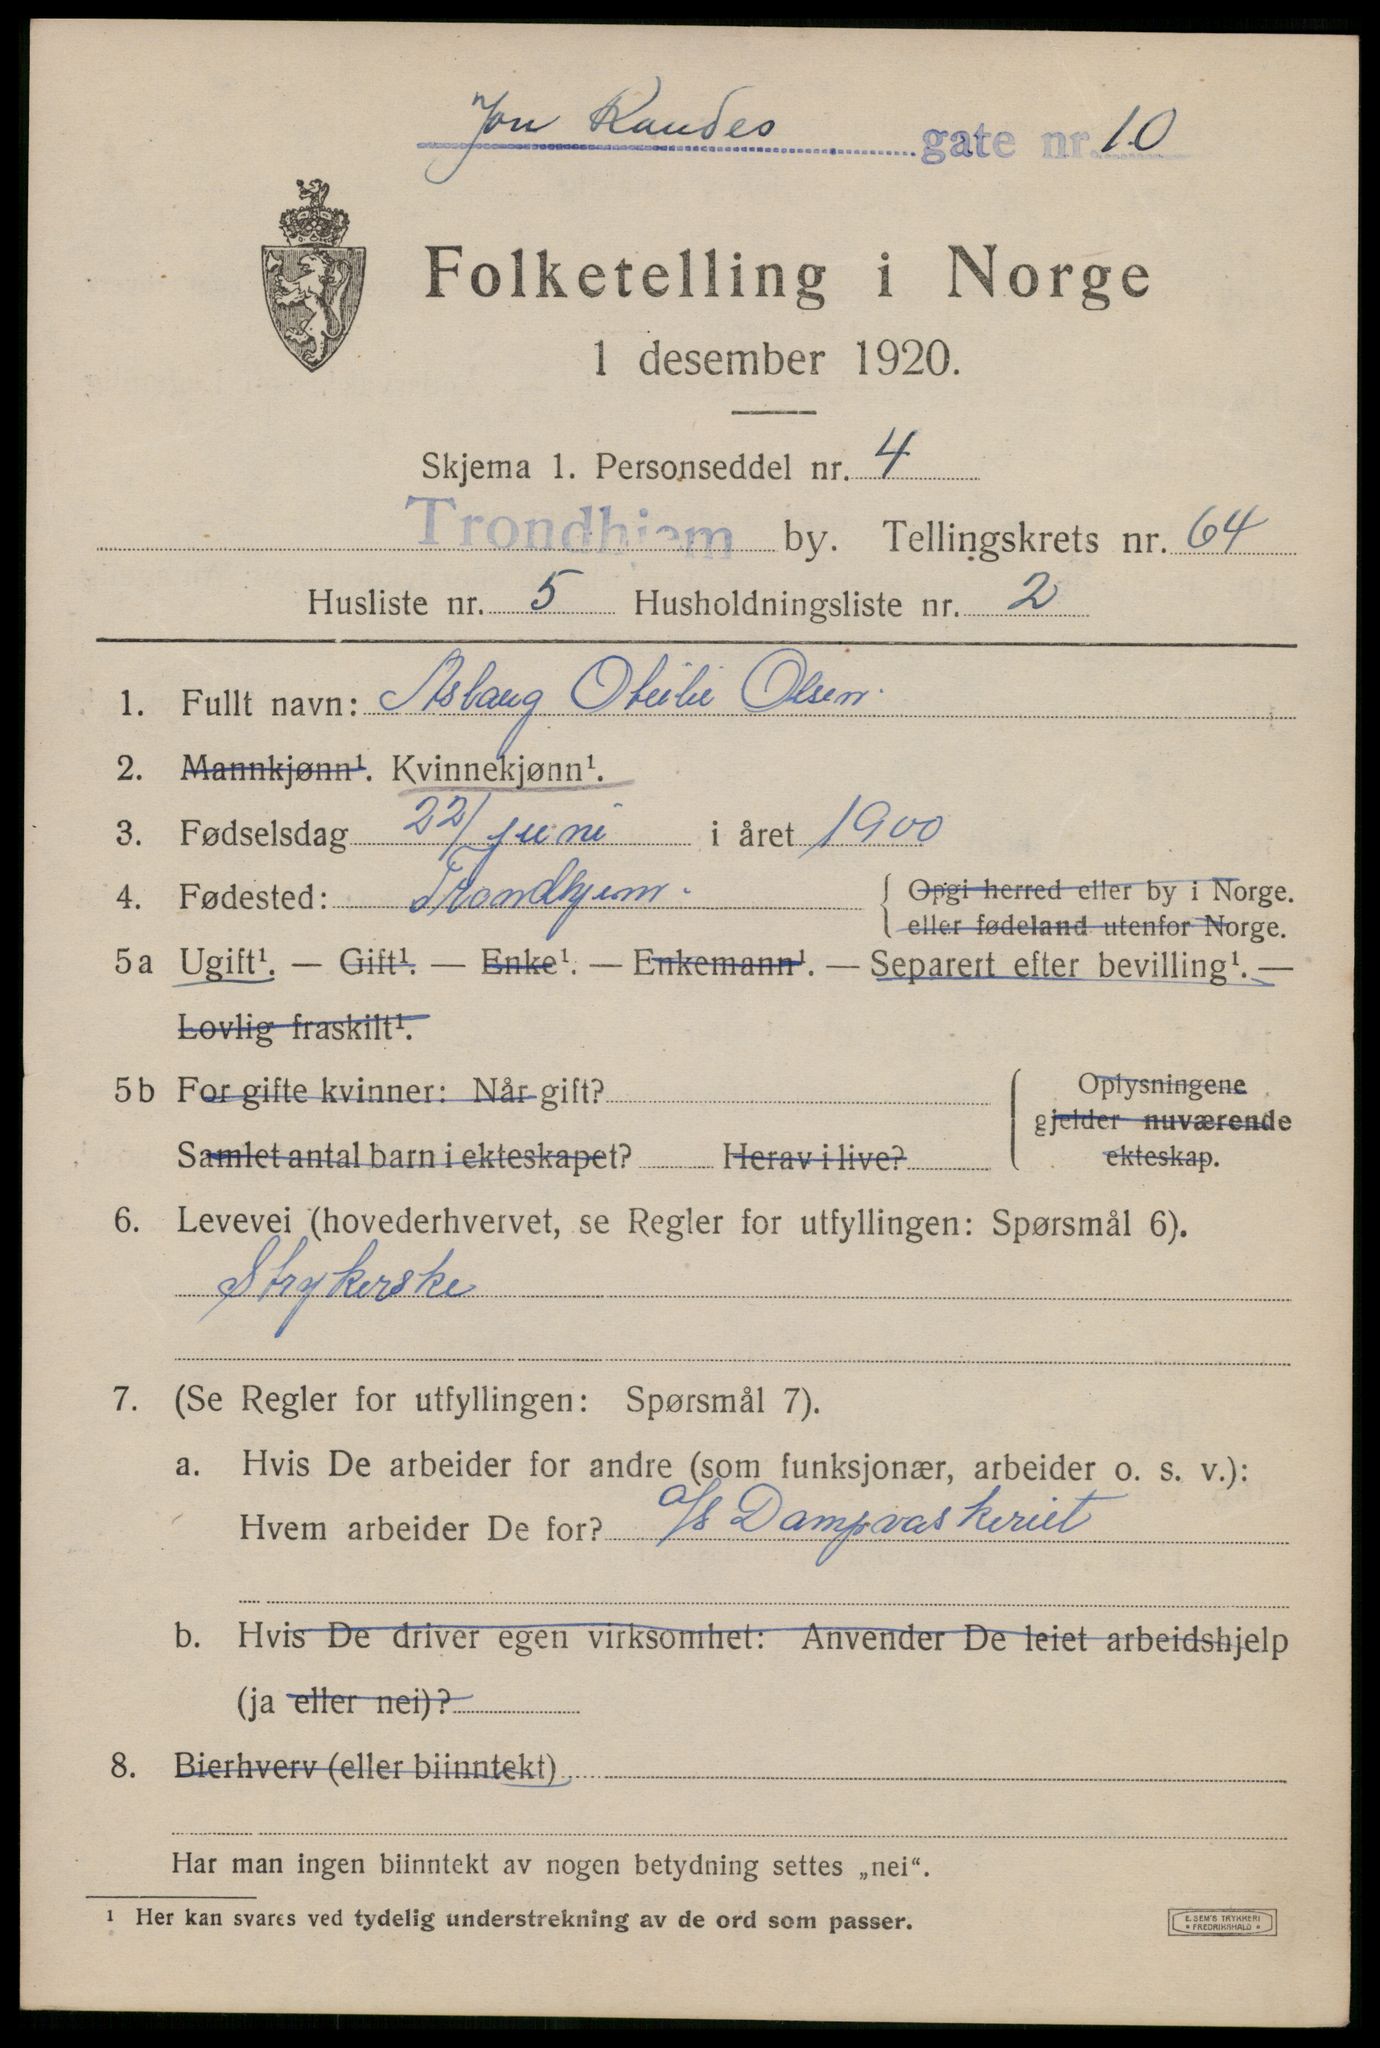 Jon Raudes gate nr. 10
Folketelling i Norge
1 desember 1920.
Skjema 1. Personseddel nr. 4
Trondhjem by. Tellingskrets nr. 64
Husliste nr. 5 Husholdningsliste nr. 2
1. Fullt navn: Aslaug Otilie Olsen.
2. Mannkjønn¹. Kvinnekjønn¹.
3. Fødselsdag 22/juni i året 1900
4. Fødested: Trondhjem. { Opgi herred eller by i Norge.
eller fødeland utenfor Norge.
5a Ugift¹. — Gift¹. — Enke¹. — Enkemann¹. — Separert efter bevilling¹. —
Lovlig fraskilt¹.
5b For gifte kvinner: Når gift? Oplysningene
gjelder nuværende
Samlet antal barn i ekteskapet? Herav i live? ekteskap.
6. Levevei (hovederhvervet, se Regler for utfyllingen: Spørsmål 6).
Strykerske
7. (Se Regler for utfyllingen: Spørsmål 7).
a. Hvis De arbeider for andre (som funksjonær, arbeider o. s. v.):
Hvem arbeider De for? a/s Dampvaskeriet
b. Hvis De driver egen virksomhet: Anvender De leiet arbeidshjelp
(ja eller nei)?
8. Bierhverv (eller biinntekt)
Har man ingen biinntekt av nogen betydning settes „nei“.
¹ Her kan svares ved tydelig understrekning av de ord som passer.
E. SEM'S TRYKKERI
FREDRIKSHALD